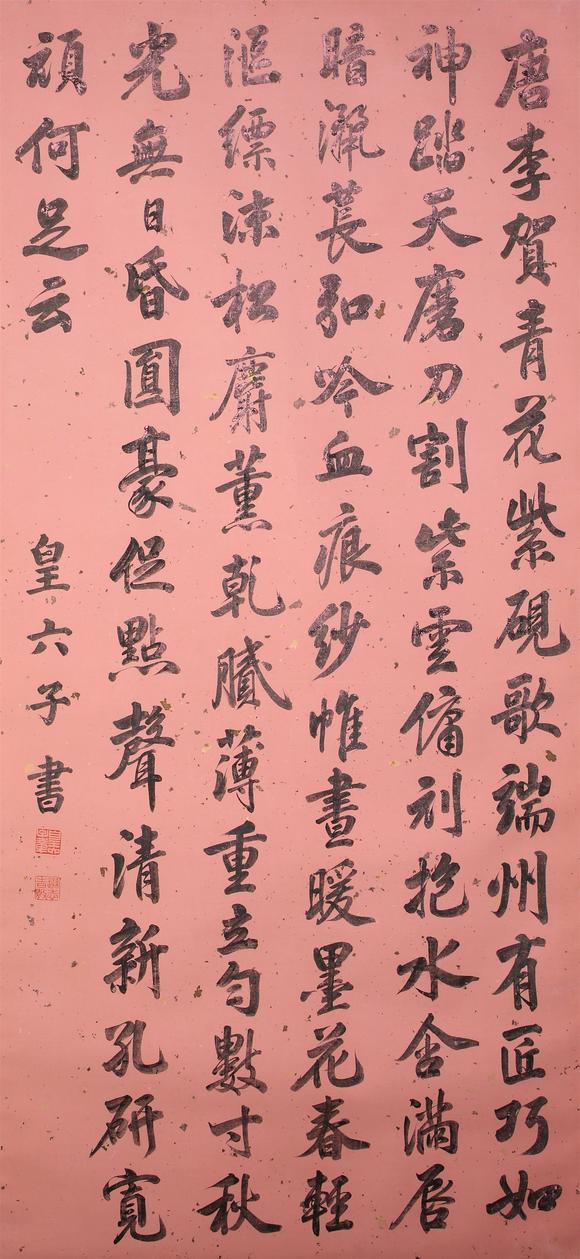 唐李賀青花紫硯歌端州有匠巧如
神踏天磨刀割紫雲傭刓抱水含滿唇
暗灑萇弘吟血痕紗帷晝暖墨花春輕
漚縹沫松麝薰乾膩薄重立勻數寸秋
光無日昏圓豪促點聲清新孔研寬
頑何足云
皇六子書